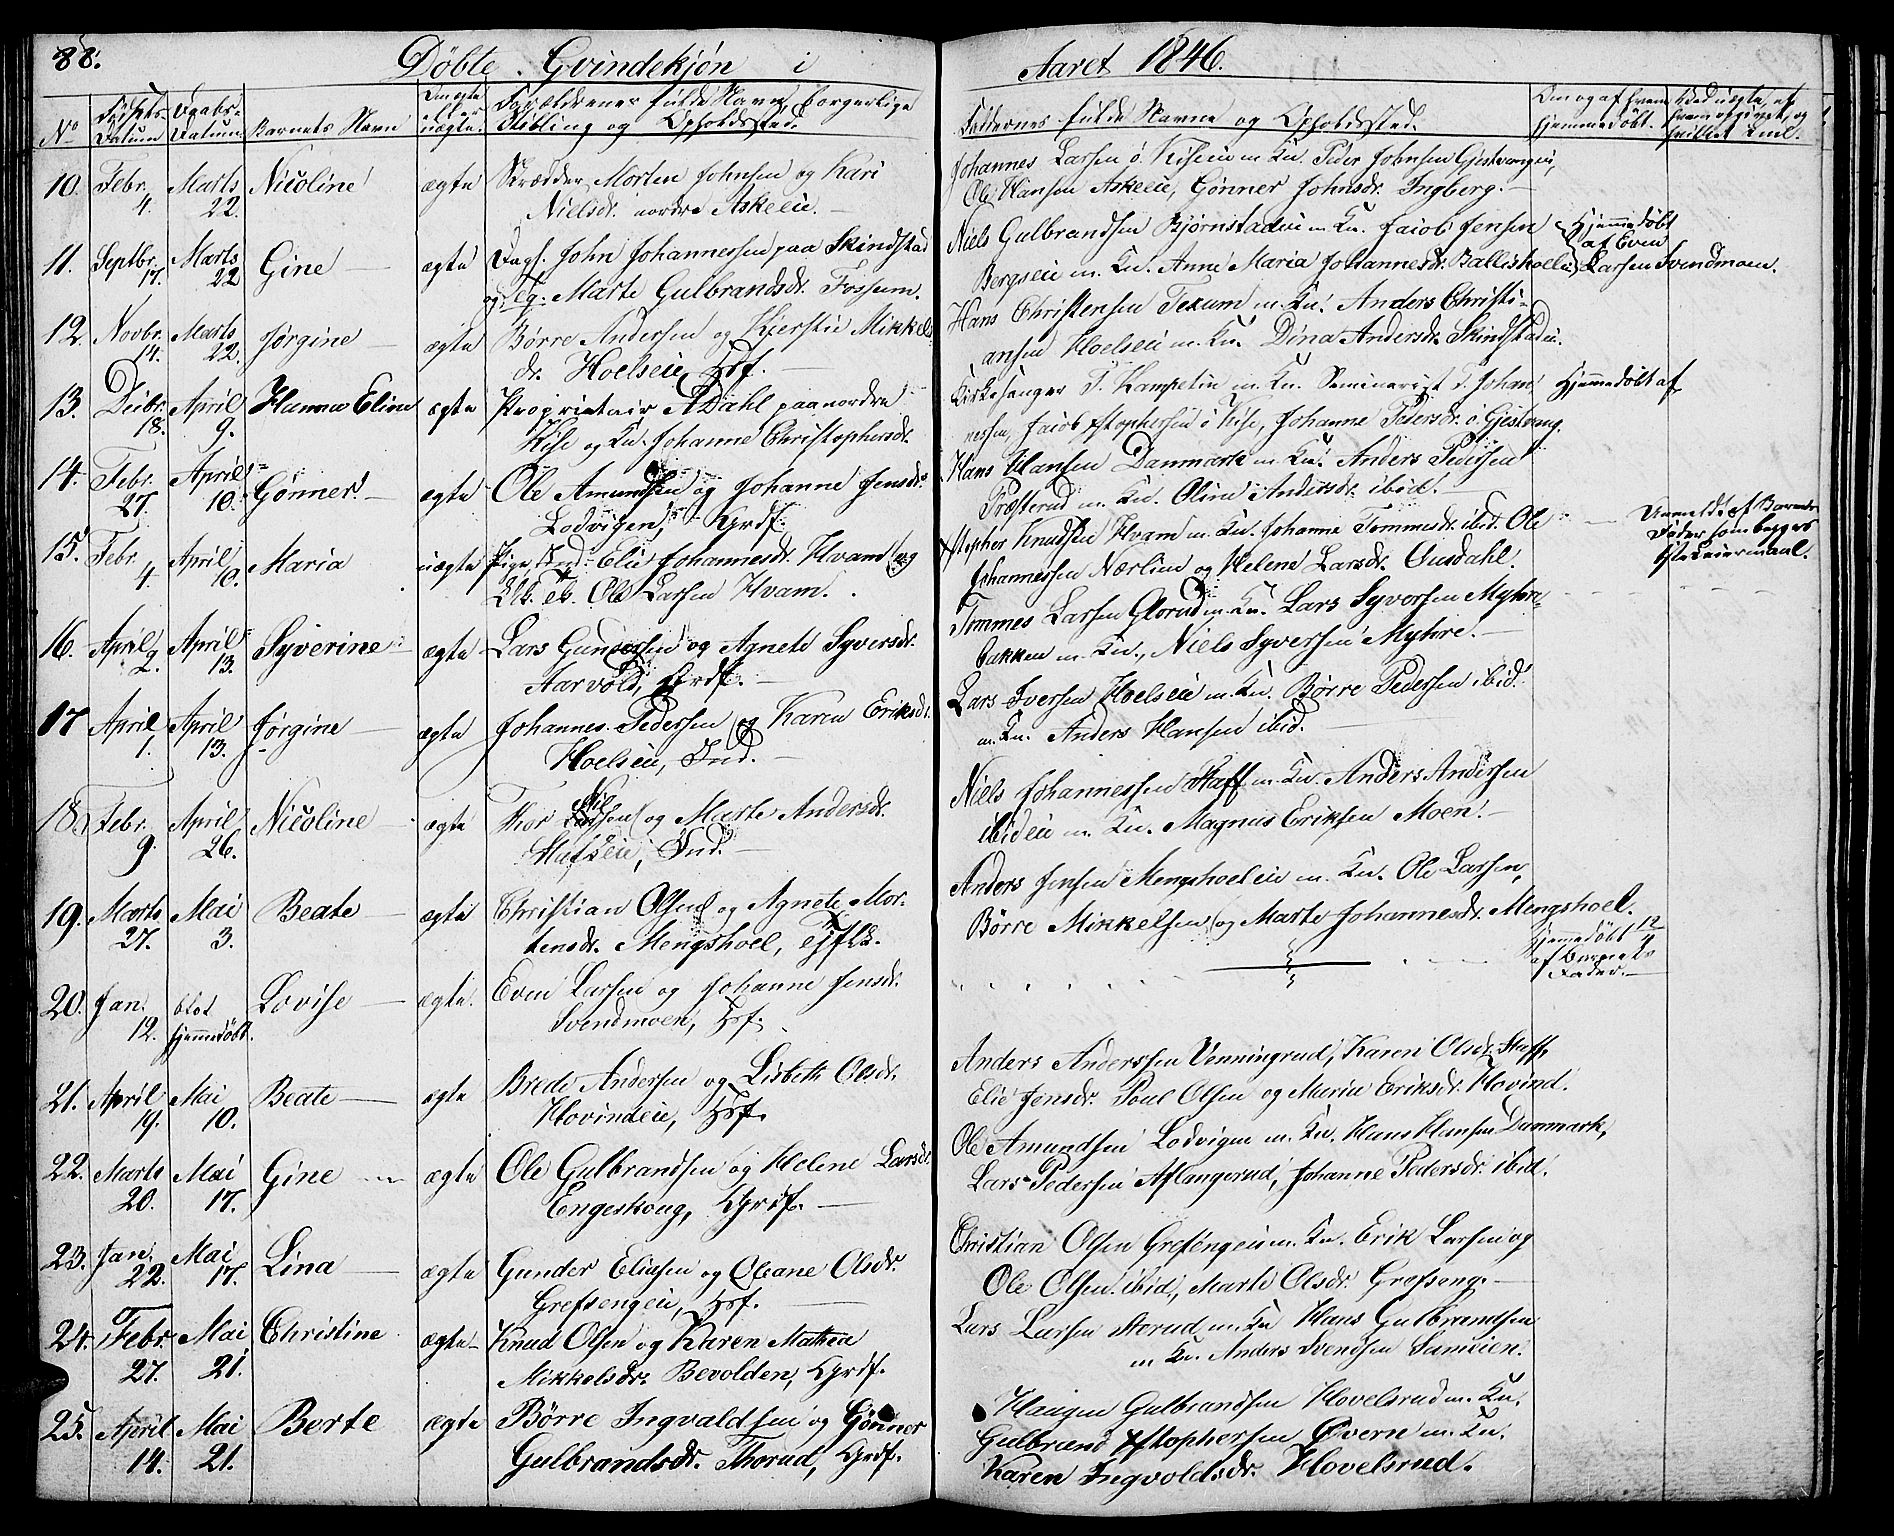 88. Döbte Qvindekjön i Aaret 1846.
No Födsels-Datum Daabs-Datum Barnets Navn Om ægte eller uægte. Forældrenes fulde Navne, borgerlige Stilling og Opholdssted.
Faddernes fulde Navne og Opholdssted. Om og af hvem hjemmedöbt.
10. Febr. 4. Marts 22. Nicoline ægte Skrædder Morten Johnsen og Kari
Nielsdr. nordre Askeeie.
Johannes Larsen ö. Kiseeie m. Ku. Peder Johnsen Gjestvangeie,
Ole Hansen Askeeie, Gönner Johnsdr. Ingberg.
11. Septbr. 17. Marts 22 Gine ægte Dagl. John Johannessen paa Skindstad
og Eg. Marte Gulbrandsdr. Fossum.
Niels Gulbrandsen Björnstadeie m. Ku. Jacob Jensen
Bergseie m. Ku. Anne Maria Johannesdr. Ballishoel
Hjemmedöbt
af Even
Larsen Svendmoen.
12. Novbr. 14. Marts 22. Jörgine ægte Börre Andersen og Kjersti Mikkels
dr. Hoelseie, Hsf.
Hans Christensen Texum m. Ku. Anders Christi-
ansen Hoelseie m. Ku. Dina Andersdr. Skindstadeie.
13. Decbr. 18. April 9. Hanna Eline ægte Proprietair A Dahl paa nordre
Kise og Ku. Johanne Christophersdr.
Kirkesanger T. Kampetin m. Ku. Seminarist T. Johan
nessen, Jacob Xstophersen ö Kise, Johanne Pedersdr. ö. Gjestvang.
Hjemmedöbt af
14. Febr. 27. April 10. Gönner ægte Ole Amundsen og Johanne Jensdr.
Lodvigen, Grdf.
Hans Hansen Danmark m. Ku. Anders Pedersen
Præsterud m. Ku. Oline Andersdr. ibid.
15. Febr. 4. April 10. Maria uægte Pige Elie Johannesdr. Hvam og
Ole Larsen Hvam.
Xstopher Knudsen Hvam m. Ku. Johanne Tommesdr. ibid. Ole
Johannessen Nærlien og Helene Larsdr. Gusdahl.
Anmeldt af Barnets
Fader som begges
1ste Leiermaal.
16. April 2. April 13. Syverine ægte Lars Gundersen og Agnete Syversdr.
Aarvold, Grdf.
Tommes Larsen Glorud m. Ku. Lars Syversen Myhre-
bakken m. Ku., Niels Syversen Myhre.
17 April 1. April 13. Jörgine ægte Johannes Pedersen og Karen Eriksdr.
Hoelseie, Ind.
Lars Iversen Hoelseie m. Ku. Börre Pedersen ibid.
m. Ku. Anders Hansen ibid.
18. Febr. 9. April 26. Nicoline ægte Thor Nilsen og Marte Andersdr.
Stafseie, Ind.
Niels Johannessen Staff m. Ku. Anders Andersen
ibideie m. Ku. Magnus Eriksen Moen.
19. Marts 27. Mai 3. Beate ægte Christian Olsen og Agnete Mor-
tensdr. Mengshoel,
Anders Jensen Mengshoeleie m. Ku. Ole Larsen,
Börre Mikkelsen og Marte Johannesdr. Mengshoel.
20. Jan. 12. blot hjemmedöbt. Lovise ægte. Even Larsen og Johanne Jensdr.
Svendmoen, Hsf.
Hjemmedöbt 12/4
af Barnets
Fader.
21. April 19. Mai 10. Beate ægte Brede Andersen og Lisbeth Olsdr.
Hovindeie, Hsf.
Anders Anderssen Venningrud, Karen Olsdr Staff,
Elie Jensdr. Poul Olsen og Maria Eriksdr. Hovind.
22. Marts 20. Mai 17. Gine ægte Ole Gulbrandsen og Helene Larsdr.
Engeskoug, Grdf.
Ole Amundsen Lodvigen m. Ku. Hans Hansen Danmark,
Lars Pedersen Aflangerud, Johanne Pedersdr. ibid.
23. Jan. 22. Mai 17. Lina ægte Gunder Eliasen og Oleane Olsdr.
Grefsengeie, Hsf.
Christian Olsen Grefsengeie m. Ku. Erik Larsen og
Ole Olsen ibid, Marte Olsdr. Grefseng.
24. Febr. 27. Mai 21. Christine ægte Knud Olsen og Karen Mathea
Mikkelsdr. Bevolden, Grdf.
Lars Larsen Storud m. Ku Hans Gulbrandsen
m Ku. Anders Svendsen
25. April 14. Mai 21. Berte ægte Börre Ingvaldsen og Gönner
Gulbrandsdr. Thorud, Grdf.
Haagen Gulbrandsen Hovelsrud m. Ku.
Gulbrand Xstophersen Övern m. Ku.
Karen Ingvoldsdr. Hovelsrud.